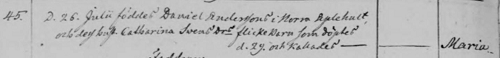 45. D. 26. Julii föddes Daniel Anderssons i Norra Aplehult
och des hust. Catharina Svens Drs flickebarn som döptes
d. 27. och kallades — Maria